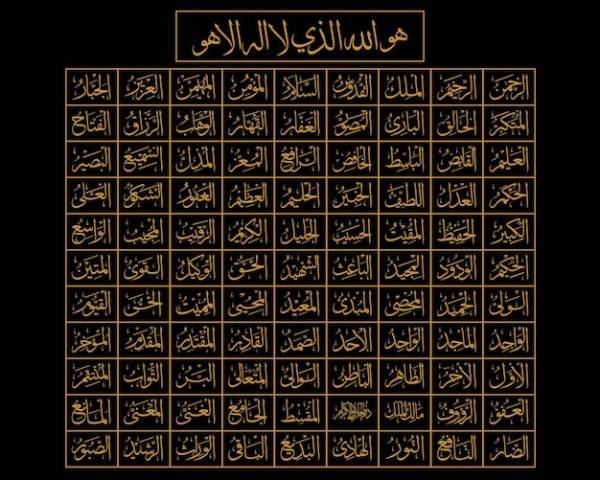 هو الله الذي لا اله الا هو
الرحمن الرحيم الملك القدوس السلام المؤمن المهيمن العزيز الجبار
المتكبر الخالق البارئ المصور الغفار القهار الوهاب الرزاق الفتاح
العليم القابض الباسط الخافض الرافع المعز المذل السميع البصير
الحكم العدل اللطيف الخبير الحليم العظيم الغفور الشكور العلي
الكبير الحفيظ المقيت الحسيب الجليل الكريم الرقيب المجيب الواسع
الحكيم الودود المجيد الباعث الشهيد الحق الوكيل القوي المتين
الولي الحميد المحصي المبدئ المعيد المحيي المميت الحي القيوم
الواجد الماجد الواحد الاحد الصمد القادر المقتدر المقدم المؤخر
الأول الآخر الظاهر الباطن الوالي المتعالي البر التواب المنتقم
العفو الرؤوف مالك الملك ذو الجلال والاكرام المقسط الجامع الغني المغني المانع
الضار النافع النور الهادي البديع الباقي الوارث الرشيد الصبور